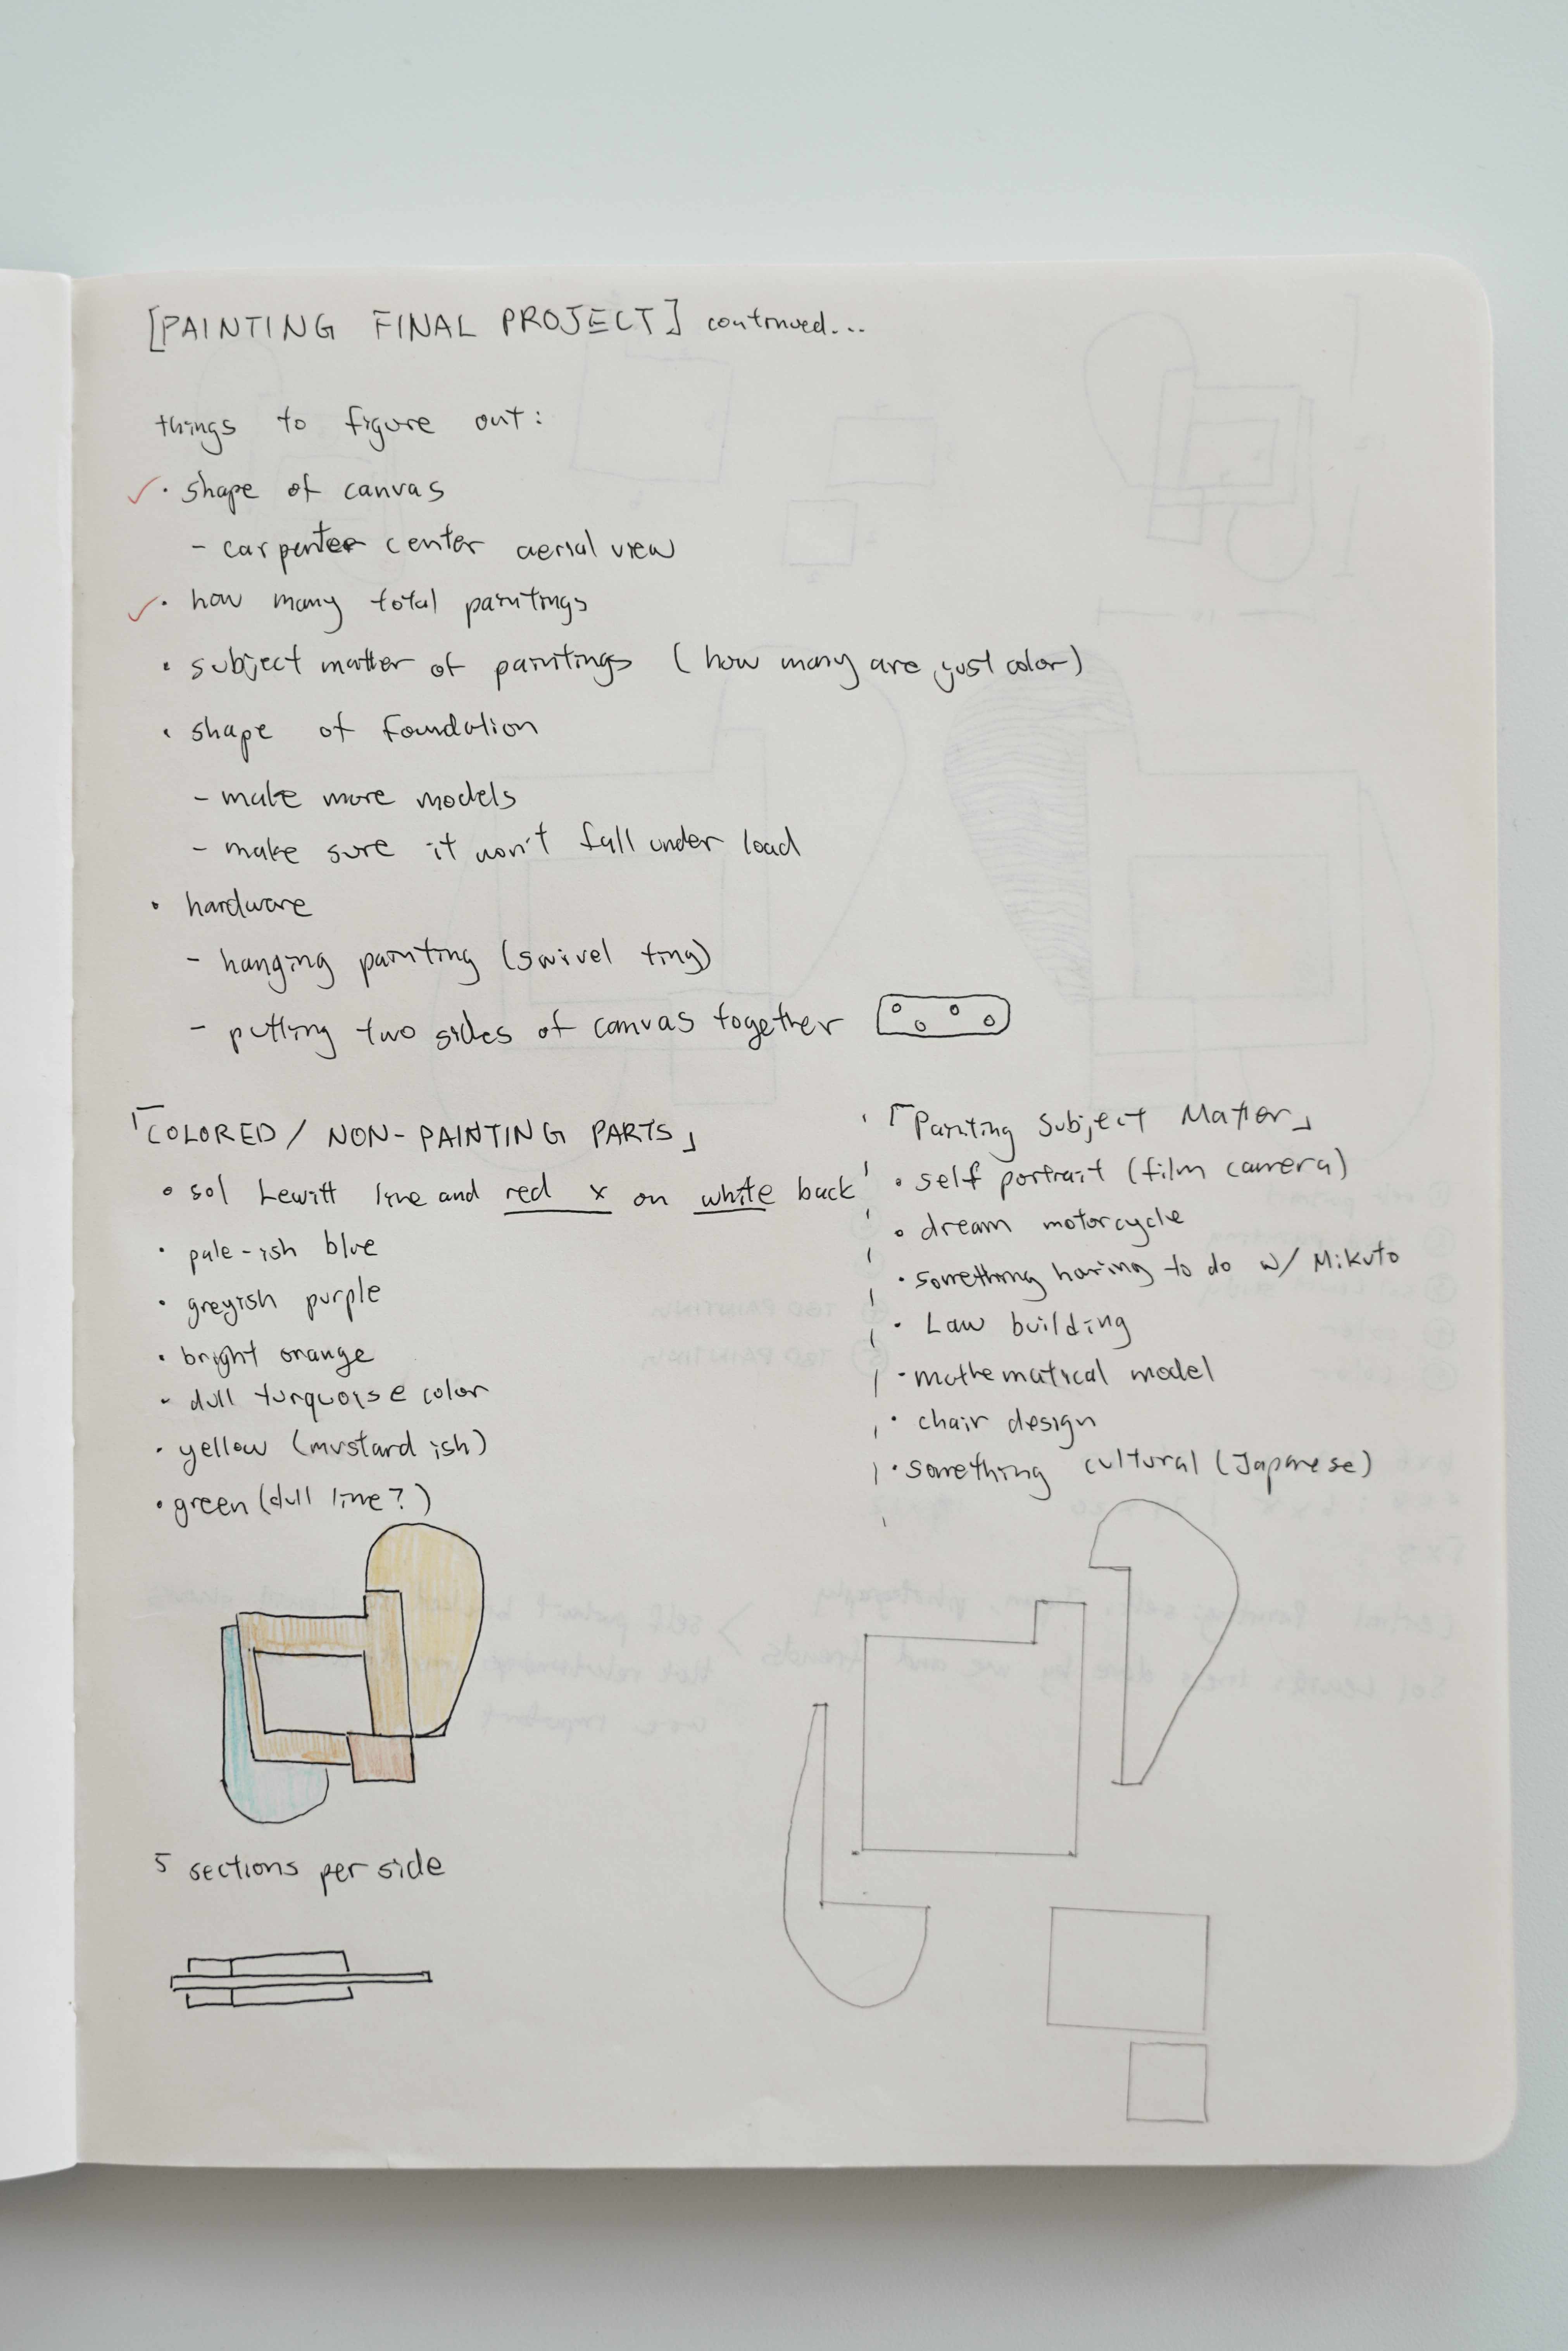 [PAINTING FINAL PROJECT] continued...
things to figure out:
✓ • shape of canvas
- carpenter center aerial view
✓ • how many total paintings
• subject matter of paintings (how many are just color)
• shape of foundation
- make more models
- make sure it won't fall under load
• hardware
- hanging painting (swivel ting)
- putting two sides of canvas together
「COLORED / NON-PAINTING PARTS」
• sol Lewitt line and red x on white back
• pale-ish blue
• greyish purple
• bright orange
- dull turquoise color
• yellow (mustard ish)
• green (dull lime?)
「Painting Subject Matter」
• self portrait (film camera)
• dream motorcycle
• something having to do w/ Mikuto
• Law building
• mathematical model
• chair design
• something cultural (Japanese)
5 sections per side
TBD PAINTING
TBD PAINTING